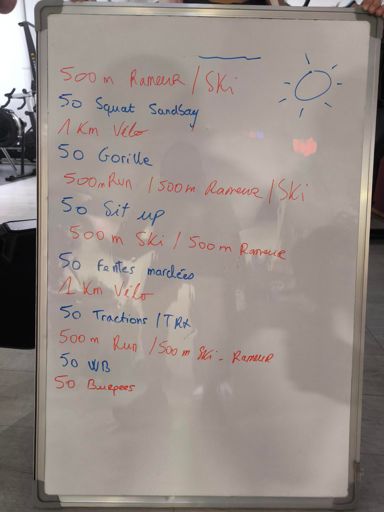 500m Rameur / Ski
50 Squat Sandbag
1 Km Vélo
50 Gorille
500m Run / 500m Rameur / Ski
50 Sit up
500m Ski / 500m Rameur
50 Fentes marchées
1 Km Vélo
50 Tractions / TRX
500m Run / 500m Ski - Rameur
50 WB
50 Burpees